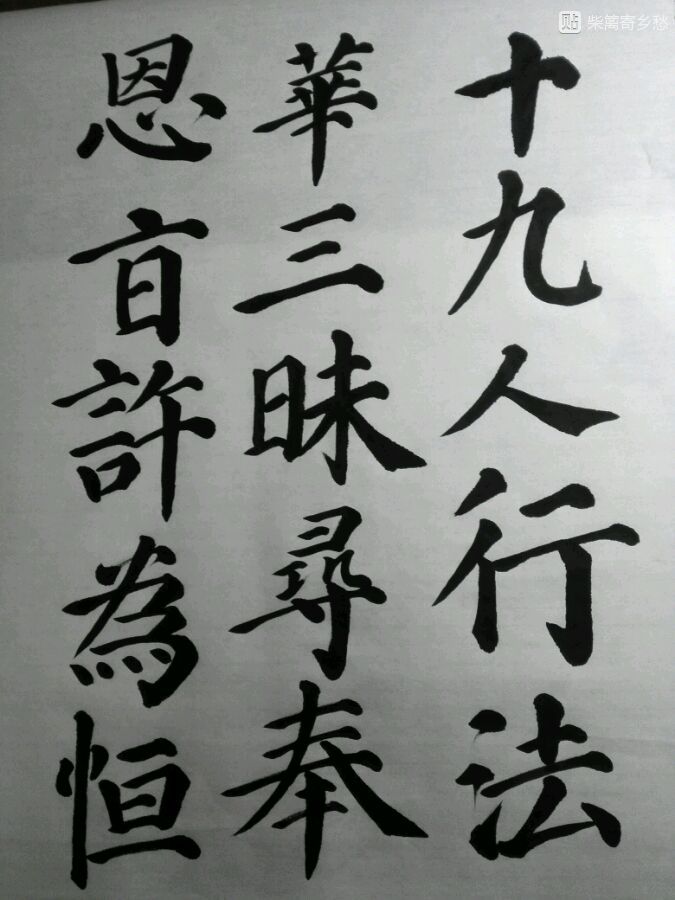 十九人行法
華三昧尋奉
恩㫖許為恒
贴 柴篱寄乡愁